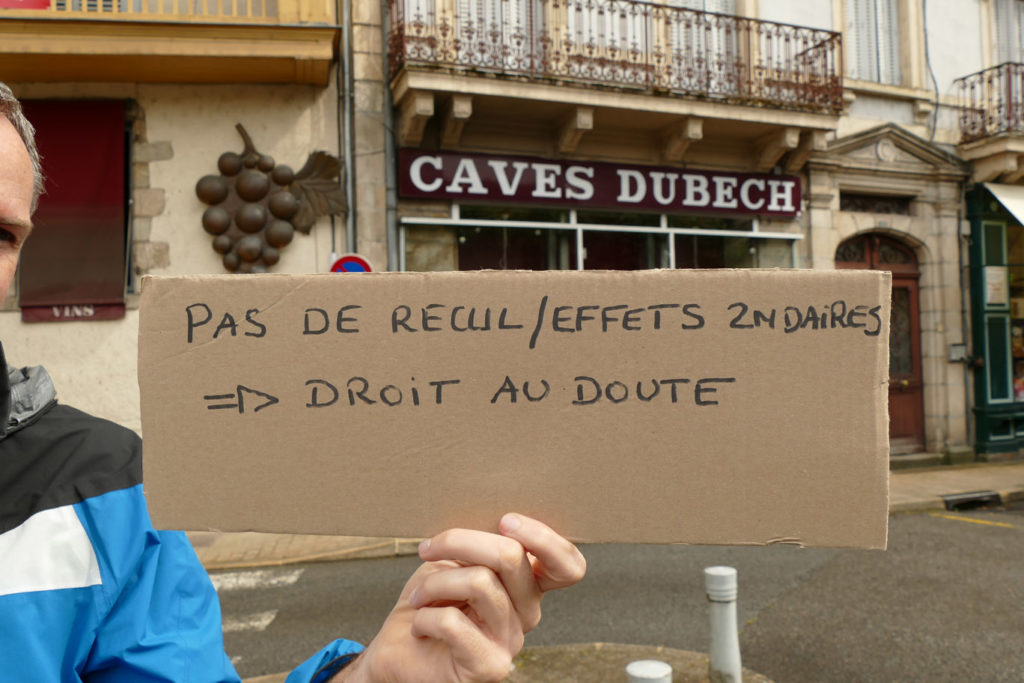 CAVES DUBECH
VINS
PAS DE RECUL/EFFETS 2NDAiRES
=> DROiT AU DOUTE